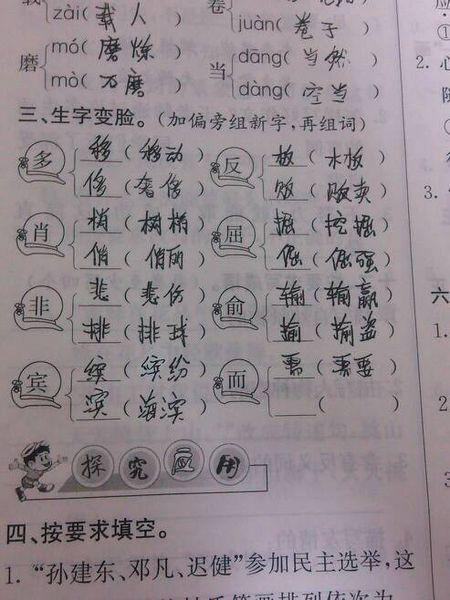 载 zài( 载人 )
卷 juàn( 卷子 )
磨 mó( 磨炼 ) 当 dāng( 当然 )
mò( 石磨 ) dàng( 空当 )
三、生字变脸。(加偏旁组新字,再组词)
多 移( 移动 ) 反 板( 木板 )
侈( 奢侈 ) 贩( 贩卖 )
肖 梢( 树梢 ) 屈 掘( 挖掘 )
俏( 俏丽 ) 倔( 倔强 )
非 悲( 悲伤 ) 俞 输( 输赢 )
排( 排球 ) 揄( 揄盗 )
宾 缤( 缤纷 ) 而 需( 需要 )
滨( 海滨 ) ( )
探究应用
四、按要求填空。
1. “孙建东、邓凡、迟健”参加民主选举,这
2. 心
3.
六
1.
2